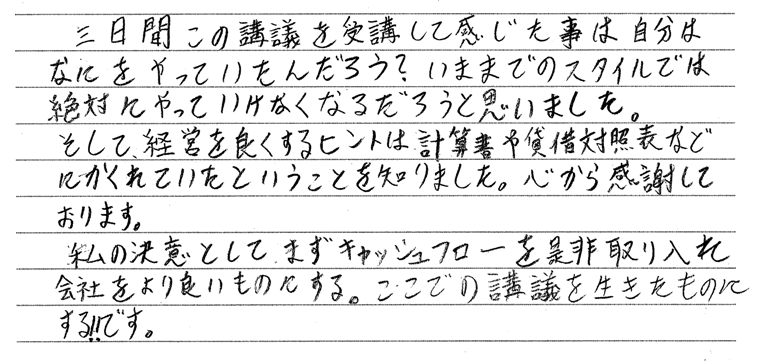 三日間この講議を受講して感じた事は自分は
なにをやっていたんだろう？いままでのスタイルでは
絶対にやっていけなくなるだろうと思いました。
そして、経営を良くするヒントは計算書や貸借対照表など
にかくれていたということを知りました。心から感謝して
おります。
私の決意として、まずキャッシュフローを是非取り入れ
会社をより良いものにする。ここでの講議を生きたものに
する!!です。